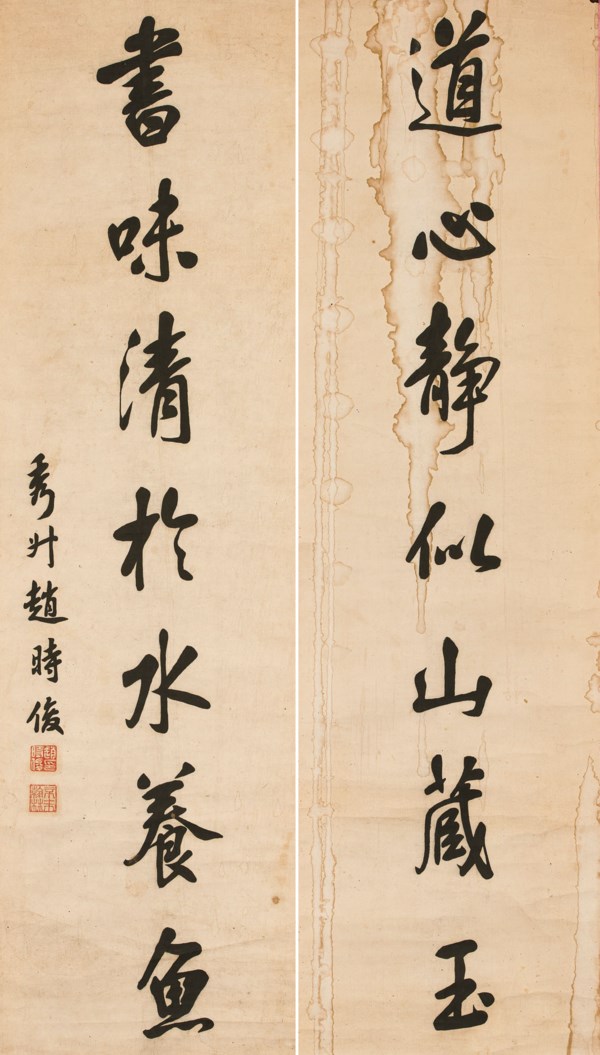 道心静似山藏玉
書味清於水養魚
秀州趙時俊